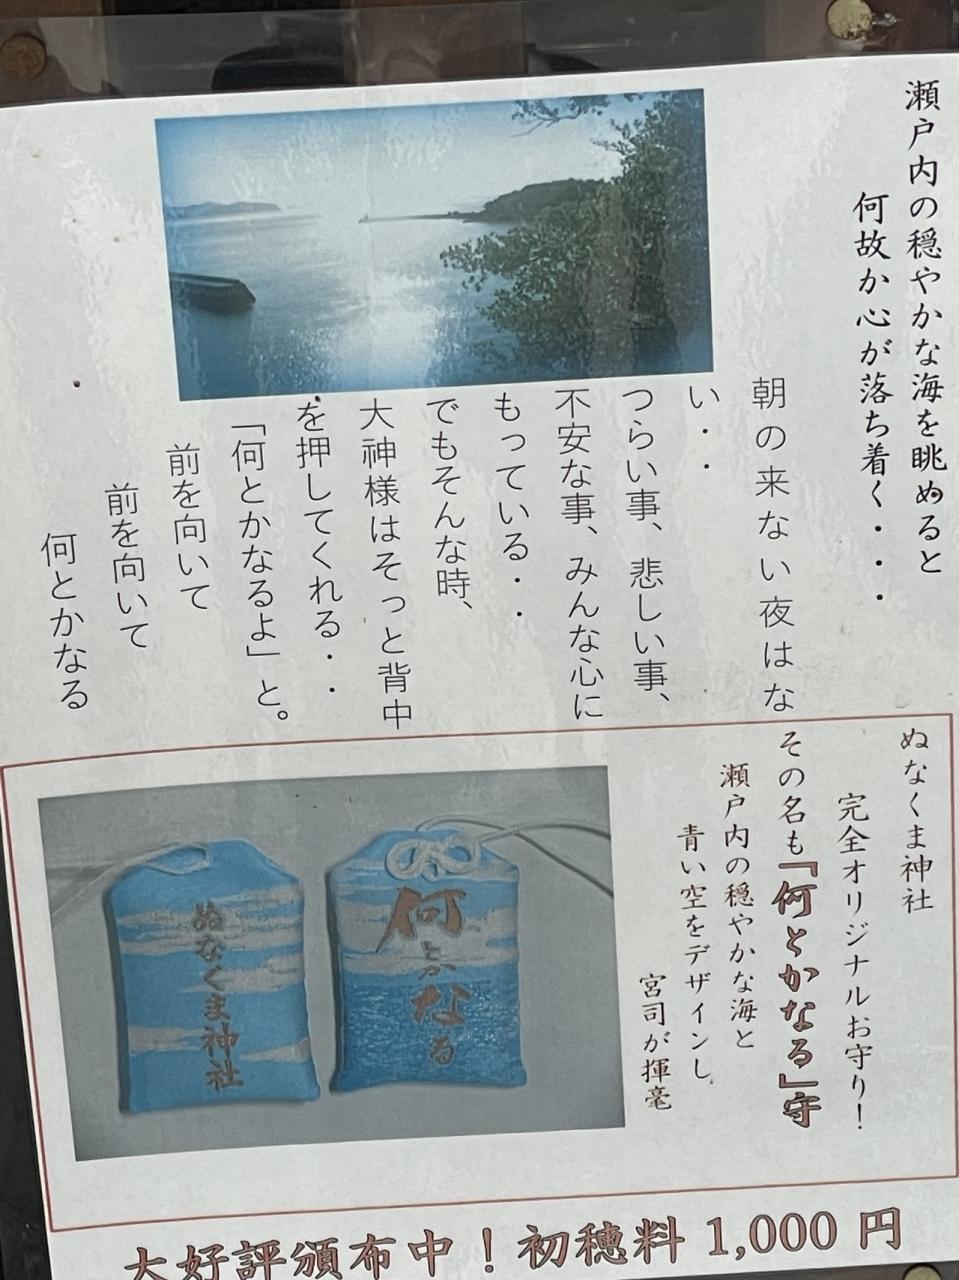 瀬戸内の穏やかな海を眺めると
何故か心が落ち着く・・・
朝の来ない夜はな
い・・
つらい事、悲しい事、
不安な事、みんな心に
もっている・・
でもそんな時、
大神様はそっと背中
を押してくれる・・
「何とかなるよ」と。
前を向いて
前を向いて
何とかなる
ぬなくま神社
完全オリジナルお守り！
その名も「何とかなる」守
瀬戸内の穏やかな海と
青い空をデザインし
宮司が揮毫
何とかなる
ぬなくま神社
大好評頒布中！初穂料 1,000 円